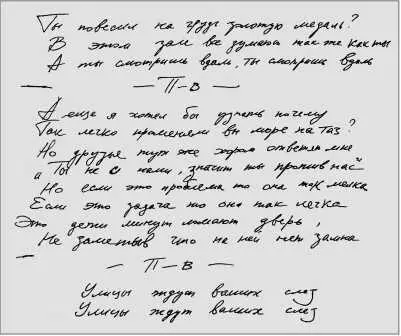 Ты повесил на грудь золотую медаль?
В этом зале все думают так же как ты
А ты смотришь вдаль, ты смотришь вдаль
— П-в —
А еще я хотел бы узнать почему
Так легко променяли вы море на таз?
Но друзья тут же хором ответят мне
"Ты не с нами, значит ты против нас"
Но если это проблема то она так мелка
Если это задача то она так легка
Эти детки минут ломают дверь,
Не заметив что на ней нет замка
— П-в —
Улицы ждут ваших слез
Улицы ждут ваших слез